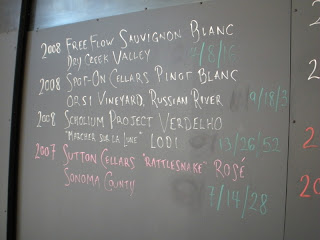 2008 Free Flow Sauvignon Blanc
Dry Creek Valley 7/8/16
2008 Spot-On Cellars Pinot Blanc
Orsi Vineyard, Russian River 9/18/3
2008 Scholium Project Verdelho
"Marcher sur la Lune" Lodi 13/26/52
2007 Sutton Cellars "Rattlesnake" Rosé
Sonoma County
7/14/28